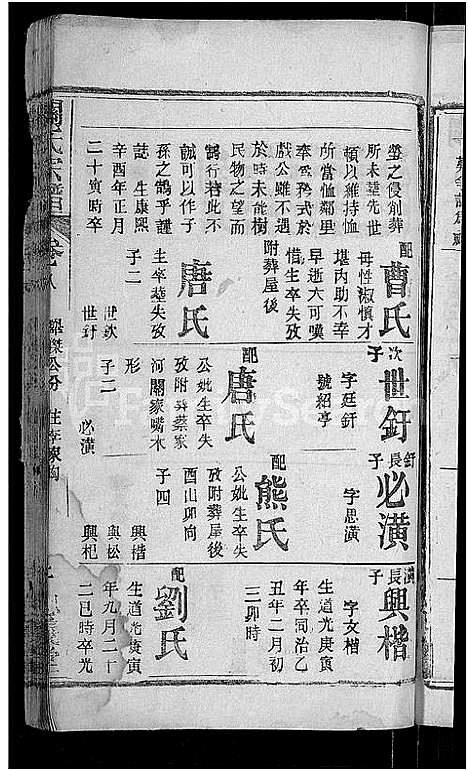 塋之侵削葬
所未塟先世
頓以維持恤
所當恤鄰里
奉為矜式於
戲公雖不遇
於時未能樹
民物之望而
行若此不
誠可以作子
孫之鵠乎謹
誌 生康熙
辛酉年正月
二十寅時卒
配曹氏
母性淑慎才
堪內助不幸
早逝六可嘆
惜生卒失攷
附葬屋後
唐氏
生卒塟失攷
子二
世欽
世釬
次子世釬
字廷釬
號紹亭
配唐氏
公妣生卒失
攷附葬蔡家
河關家嘴木
形
子二
必潢
釬長子必潢
字思潢
配熊氏
公妣生卒失
攷附葬屋後
酉山卯向
子四
興楷
興松
興杞
潢長子興楷
字文楷
生道光庚寅
年卒同治乙
丑年二月初
三卯時
配劉氏
生道光庚寅
年九月二十
二巳時卒光
氏宗譜